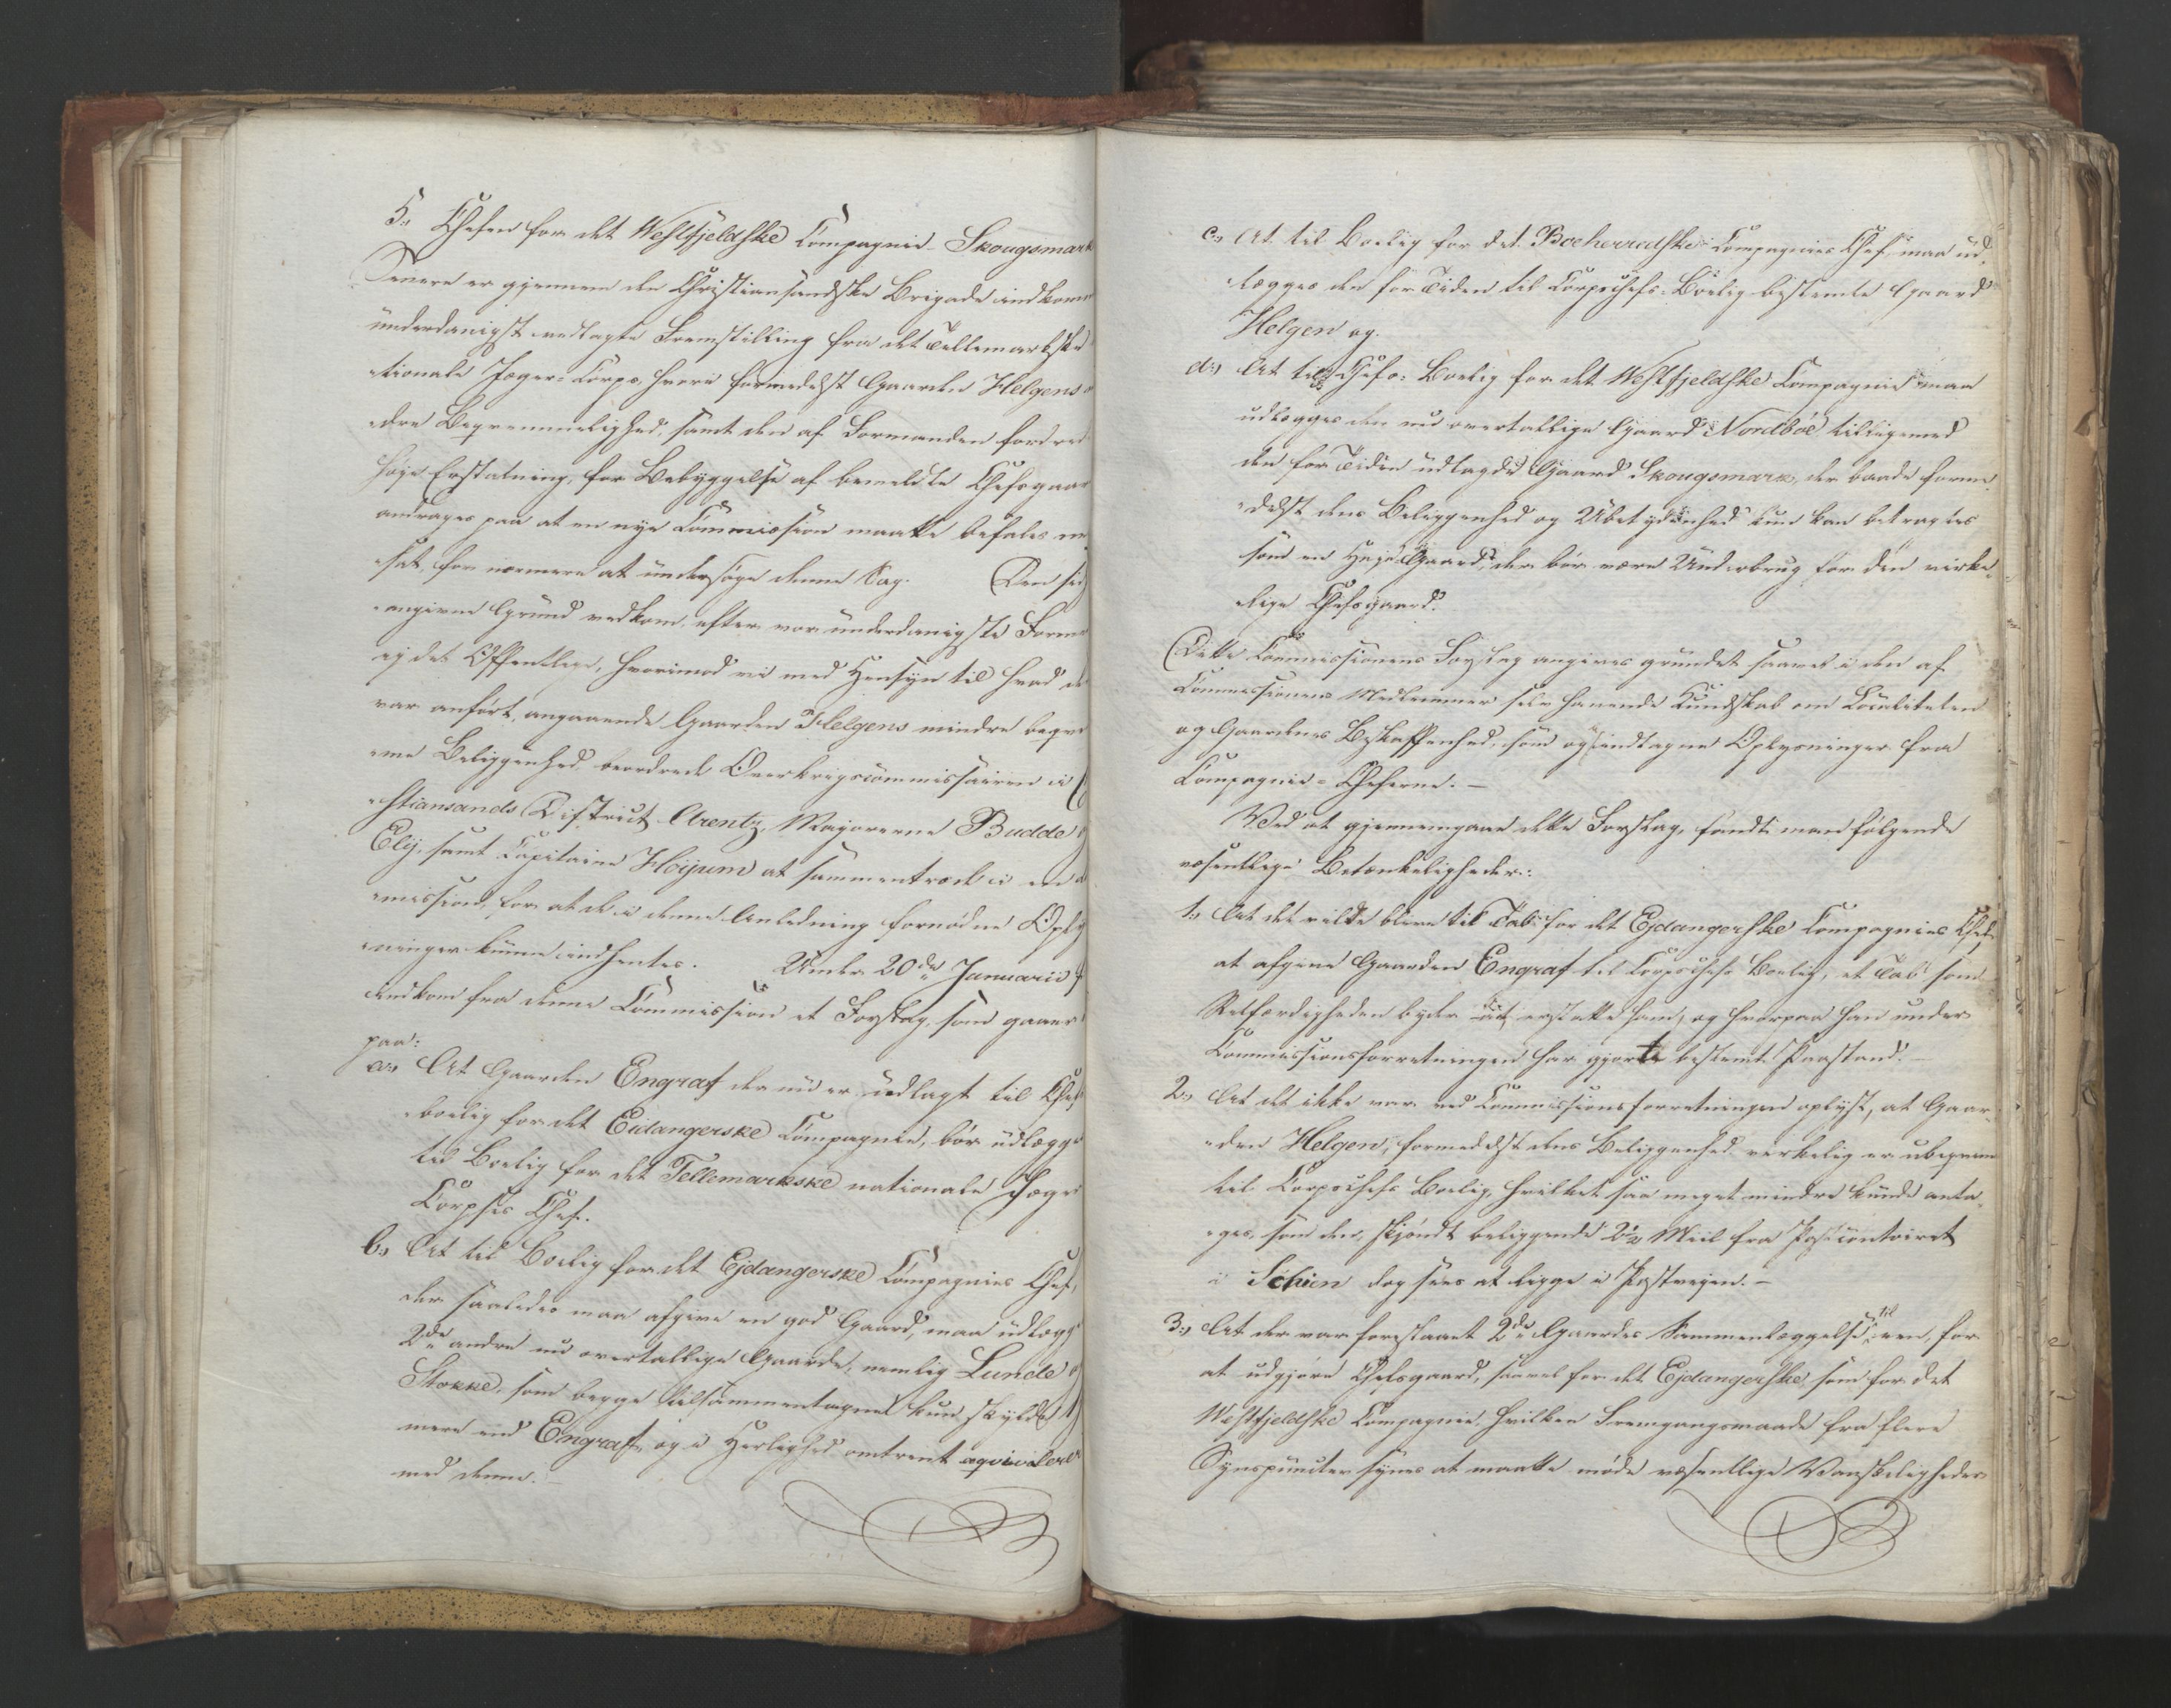 5., Chefen for det Westfjeldske Compagnie Skougsmark
Senere er gjennem den Christiansandske Brigade indkom
underdanigst vedlagte Fremstilling fra det Tellemarkske
-tionale Jæger-Corps, hvori formedelst Gaarden Helgens
-dre Beqvemmelighed, samt den af Formanden fordrede
høje Erstatning, for Bebyggelse af bemeldte Chefsgaar
andrages paa at en nye Commission maatte befales
-sat, for nærmere at undersøge denne Sag. Den sid
-angivne Grund vedkom, efter vor underdanigste Forme
ej det Offentlige, hvorimod vi med Hensyn til hvad
var anført, angaaende Gaarden Helgens mindre beqve
-me Beliggenhed, beordrede Overkrigscommissairen i
-stiansands District Arentz, Majorerne Budde
Ely, samt Capitaine Höijum at sammentræde i en
-mission, for at de i denne Anledning fornødne Oply
-ninger kunne indhentes. Under 20de Januarii
indkom fra denne Commission et Forslag, som gaaer
paa:
a., At Gaarden Engraf der nu er udlagt til Chef
-boelig for det Eidangerske Compagnie, bør udlægge
til Boelig for det Tellemarkske nationale Jæger
Corpses Chef.
b., At til Boelig for det Ejdangerske Compagnies Chef,
der saaledes maa afgive en god Gaard, maa udlægg
2de andre nu overtallige Gaarde, nemlig Lunde
Stokke, som begge tilsammentagne kun skylde
mere end Engraf, og i Herlighed omtrent æqvivalere
med denne.
c., At til Boelig for det Boeherredske Compagnies Chef maa ud-
lægges den for Tiden til Corpschefs-Boelig bestemte Gaard
Helgen og.
d., At til Chefs-Boelig for det Westfjeldske Compagnie maa
udlægges den nu overtallige Gaard Nordböe tilligemed
den for Tiden udlagde Gaard Skougsmark, der baade forme
-delst dens Beliggenhed og Ubetydenhed kun kan betragtes
som en Gaard, der bør være Underbrug for den virke-
-lige Chefsgaard.
Dette Commissionens Forslag angives grundet saavel i den af
Commissionens Medlemmer selv havende Kundskab om Localiteten
og Gaardenes Beskaffenhed, som og i indtagne Oplysninger fra
Compagnie-Cheferne.-
Ved at gjennemgaae dette Forslag, fandt man følgende
væsentlige Betænkeligheder:
1., At det vilde blive til Tab for det Ejdangerske Compagnies Chef
at afgive Gaarden Engraf til Corpschefs Boelig, et Tab som
Retfærdigheden byder at erstatte ham, og hvorpaa han under
Commissionsforretningen har gjort bestemt Paastand.-
2., At det ikke var ved Commissionsforretningen oplyst, at Gaar-
-den Helgen, formedelst dens Beliggenhed virkelig er ubeqvem
til Corpschefs Boelig, hvilket saa meget mindre kunde anta-
-ges, som den, skjøndt beliggende 2½ Miil fra Postcontoiret
i Schien dog sees at ligge i Postvejen.-
3., At der var foreslaaet 2de Gaardes Sammenlæggelse til een, for
at udgjøre Chefsgaard, saavel for det Ejdangerske som for det
Westfjeldske Compagnie, hvilken Fremgangsmaade fra flere
Synspuncter synes at maatte møde væsentlige Vanskeligheder